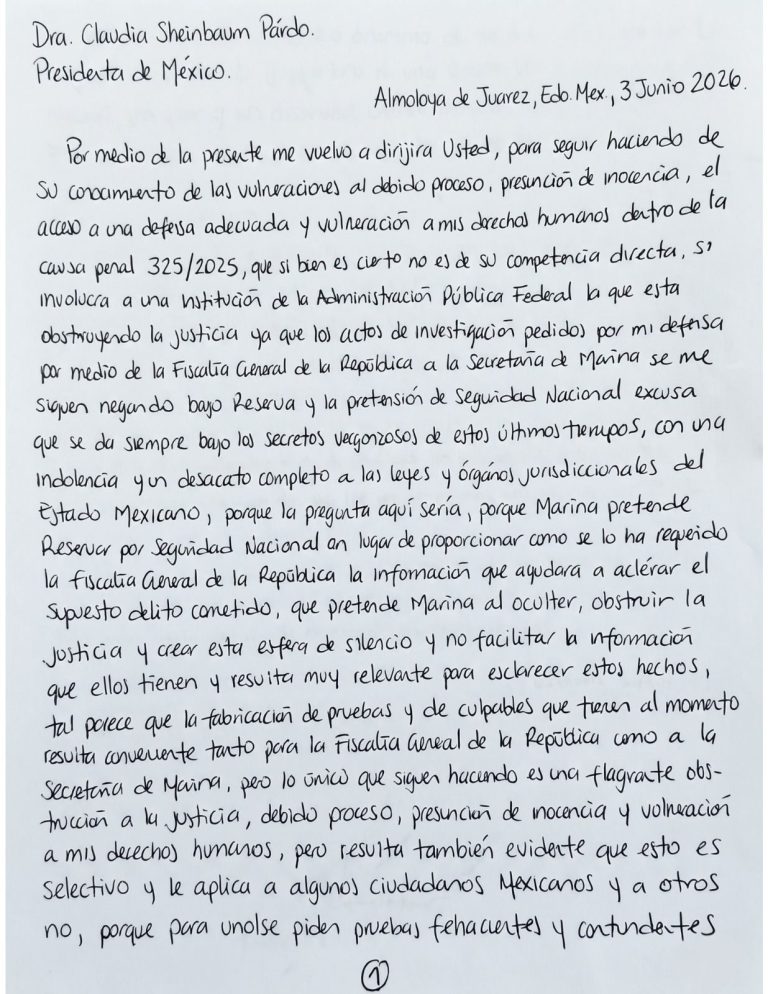 Dra. Claudia Sheinbaum Párdo.
Presidenta de México.
Almoloya de Juarez, Edo. Mex., 3 Junio 2026.
Por medio de la presente me vuelvo a dirijira Usted, para seguir haciendo de
su conocimiento de las vulneraciones al debido proceso, presunción de inocencia, el
acceso a una defensa adecuada y vulneración a mis derechos humanos dentro de la
causa penal 325/2025, que si bien es cierto no es de su competencia directa, si
involucra a una institución de la Administración Pública Federal la que esta
obstruyendo la justicia ya que los actos de investigación pedidos por mi defensa
por medio de la Fiscalia General de la Repúldica a la Secretaría de Marina se me
siguen negando bajo Reserva y la pretensión de Seguridad Nacional excusa
que se da siempre bajo los secretos vergonzosos de estos últimos tiempos, con una
indolencia y un desacato completo a las leyes y órgános jurisdiccionales del
Estado Mexicano, porque la pregunta aquí sería, porque Marina pretende
Reservar por Seguridad Nacional en lugar de proporcionar como se lo ha requerido
la fiscalia General de la República la información que ayudara a aclérar el
supuesto delito cometido, que pretende Marina al oculter, obstruir la
justicia y crear esta esfera de silencio y no facilitar la información
que ellos tienen y resulta muy relevante para esclarecer estos hechos,
tal parece que la fabricación de pruebas y de culpables que tienen al momento
resulta conveniente tanto para la Fiscalia General de la República como a la
Secretaría de Marina, pero lo único que siguen haciendo es una flagrante obs-
trucción a la justicia, debido proceso, presunción de inocencia y volneración
a mis derechos humanos, pero resulta también evidente que esto es
selectivo y le aplica a algunos ciudadanos Mexicanos y a otros
no, porque para unolse piden pruebas fehacientes y contundentes
1